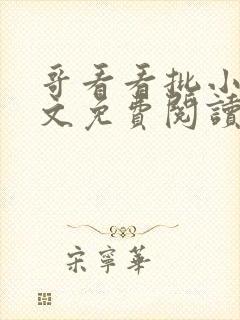 哥看看批小
文免費閱讀
宋寧華